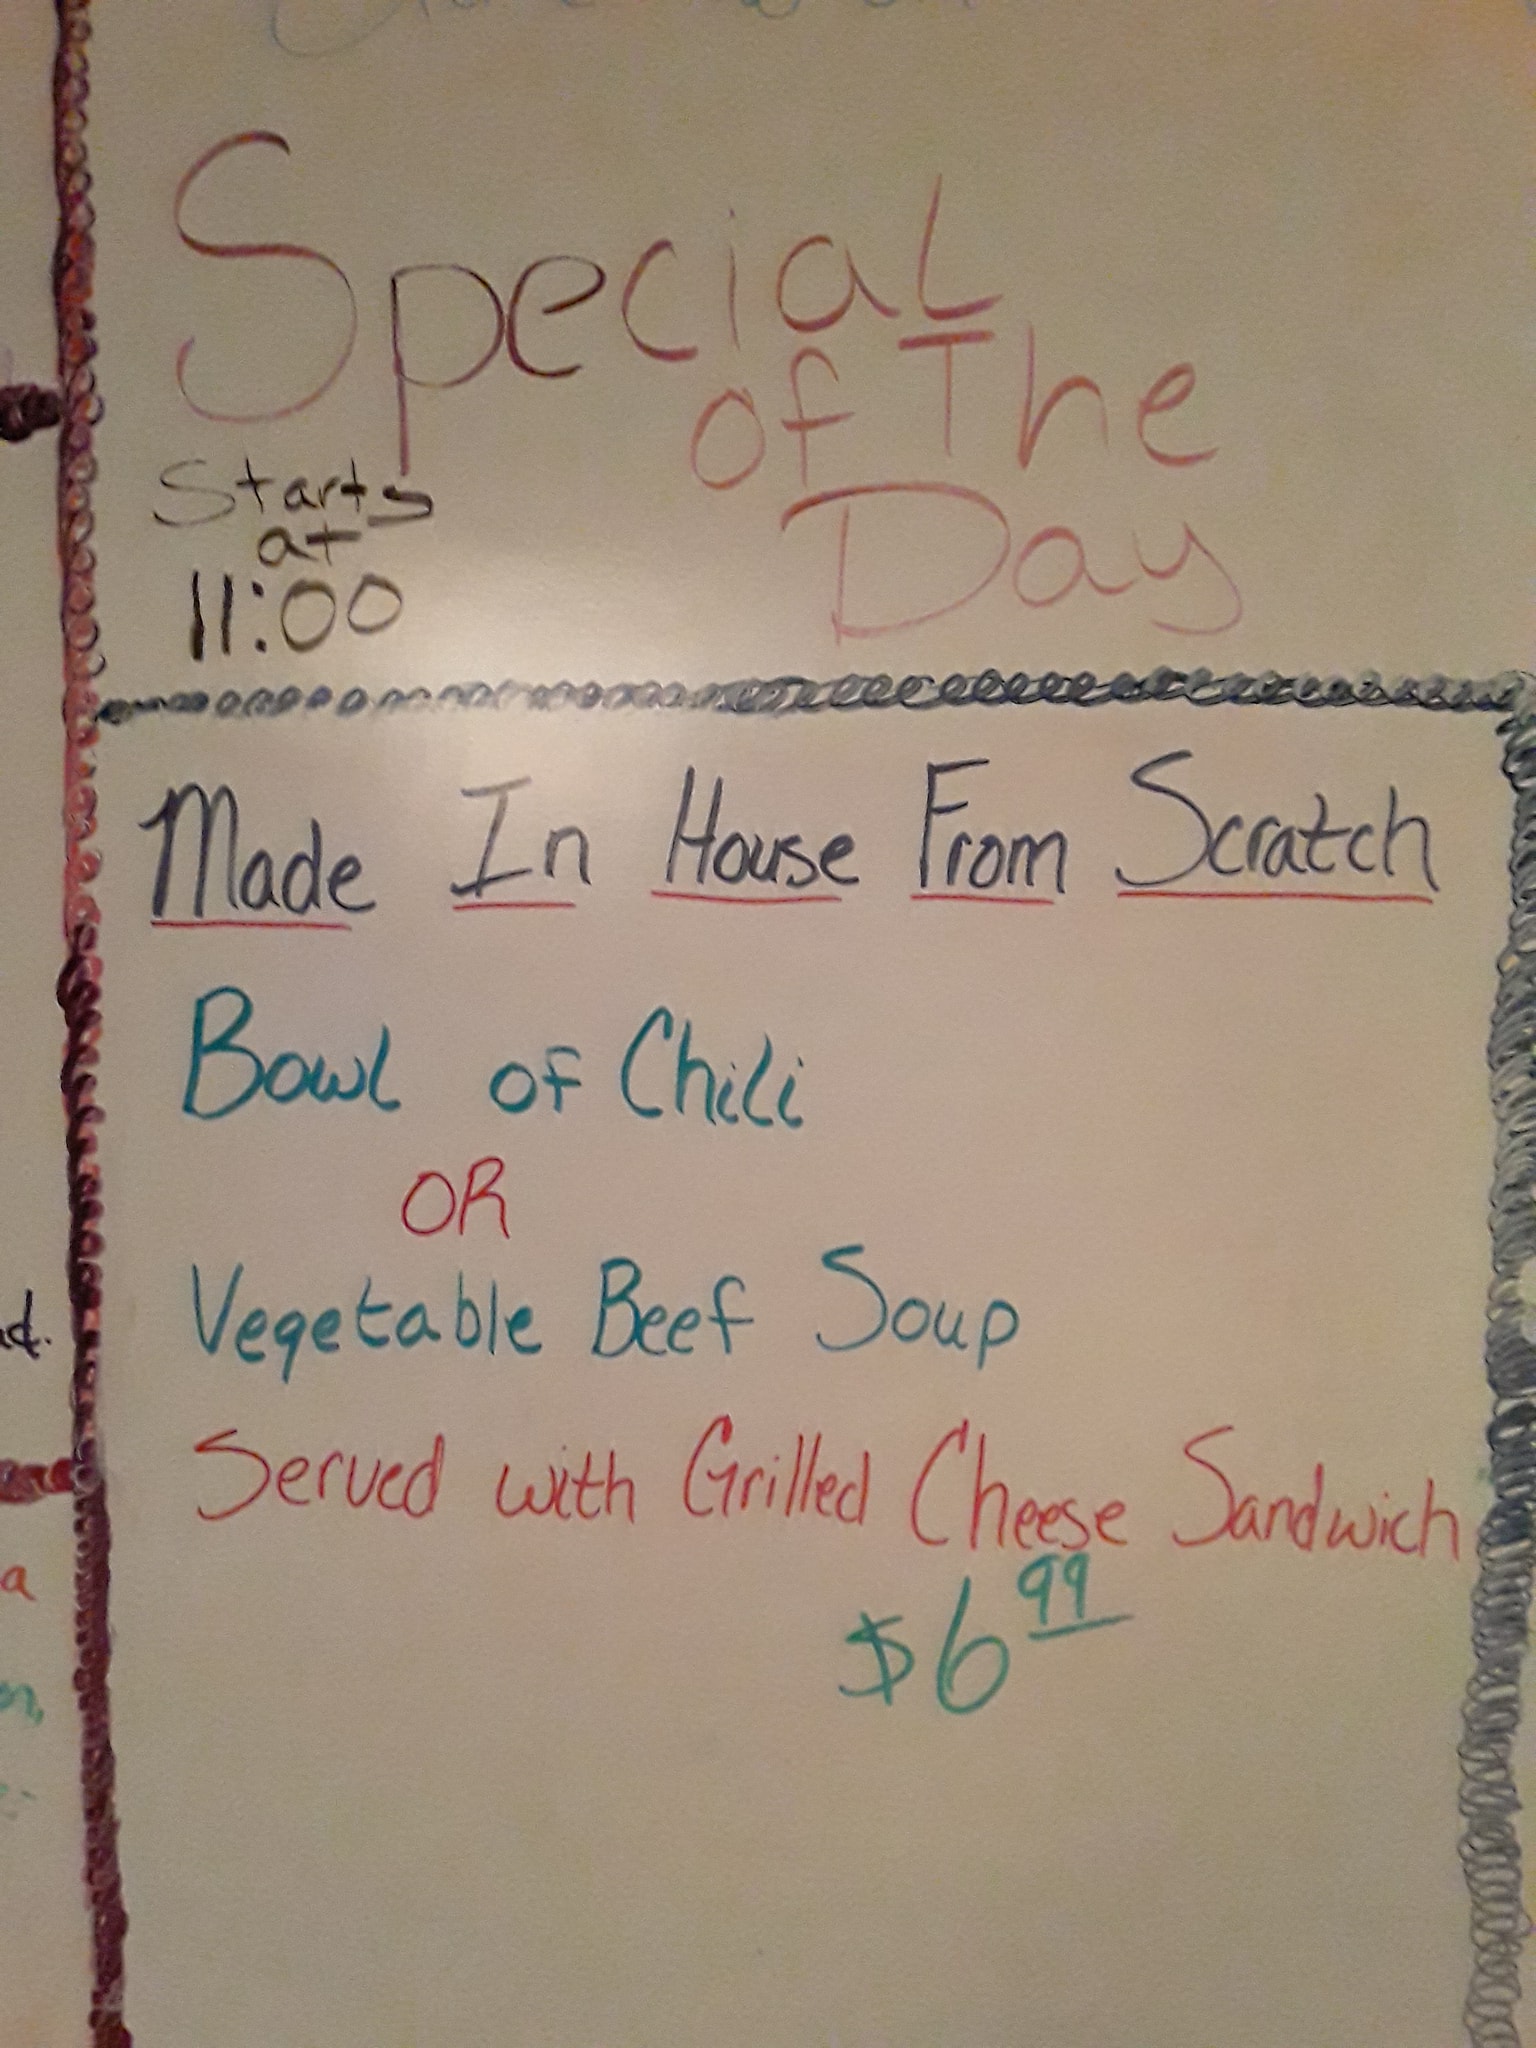 Special
of The
Day
Starts
at
11:00
Made In House From Scratch
Bowl of Chili
OR
Vegetable Beef Soup
Served with Grilled Cheese Sandwich
$6 99
a